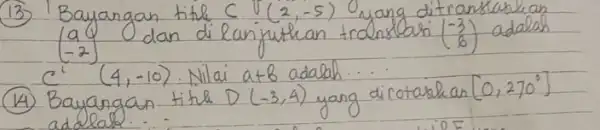 (13) Bayangan titik C (2,-5) yang ditranslasikan
(a -2) dan dilanjutkan translasi (-3 b) adalah
C' (4,-10). Nilai a+b adalah....
(14) Bayangan titik D (-3,4) yang dirotasikan [0,270°]
adalah...